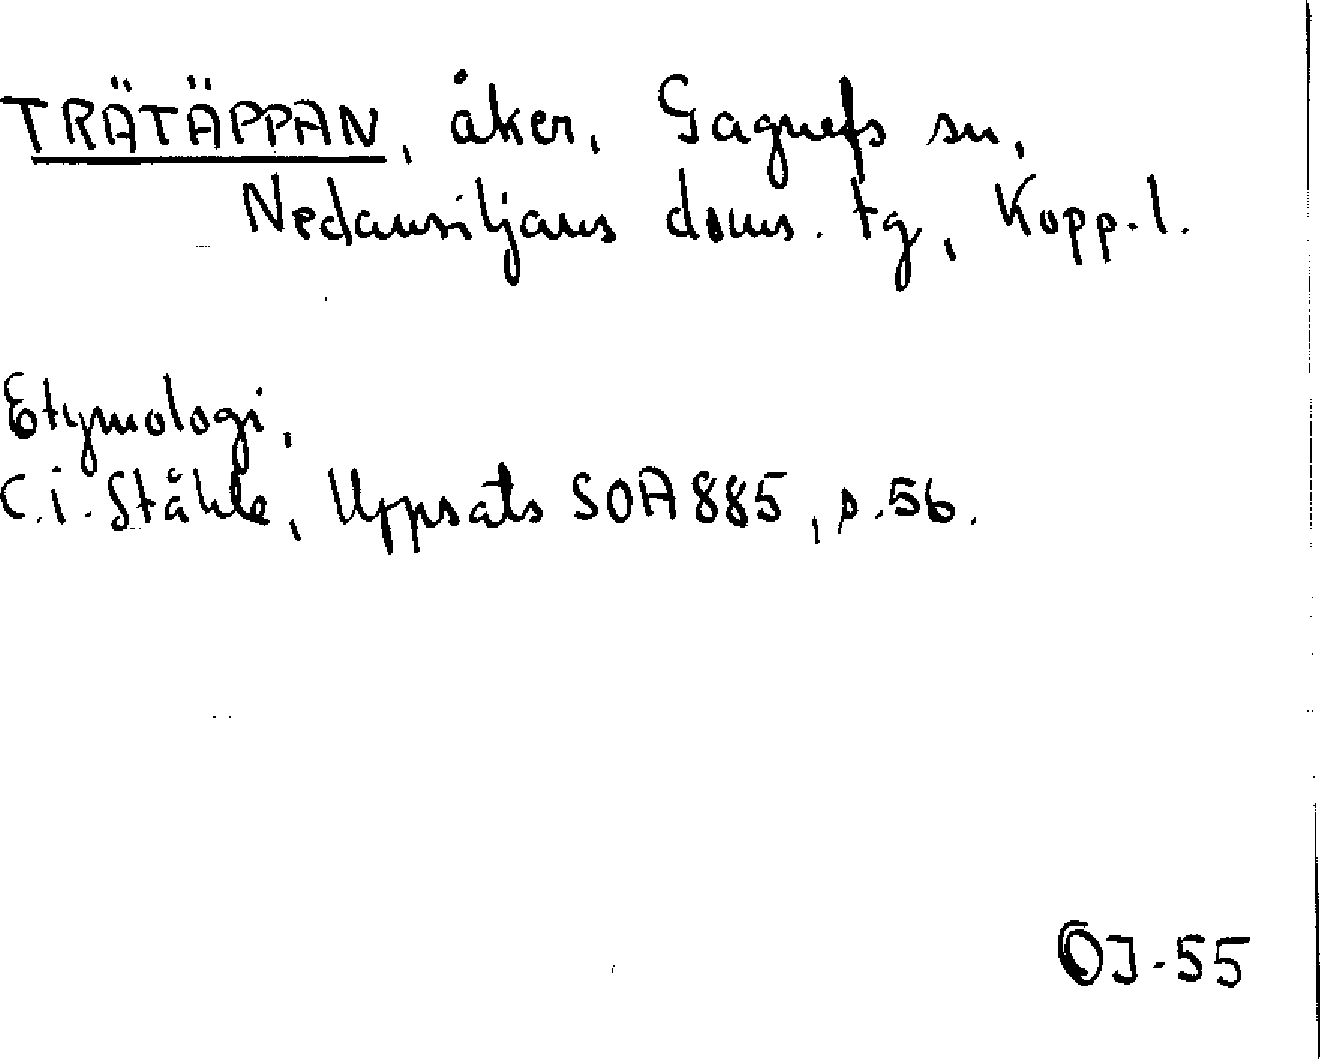 TRÄTÄPPAN, åker, Gagnefs sn,
Nedansiljans doms. tg, Kopp. l.
Etymologi,
C.i. Ståhle, Uppsats SOA 885, s. 56.
OJ-55